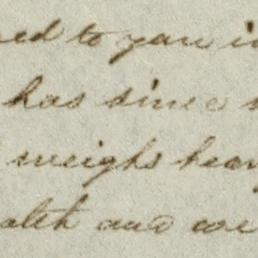 ed to you i
has since
weighs heav
alth and we